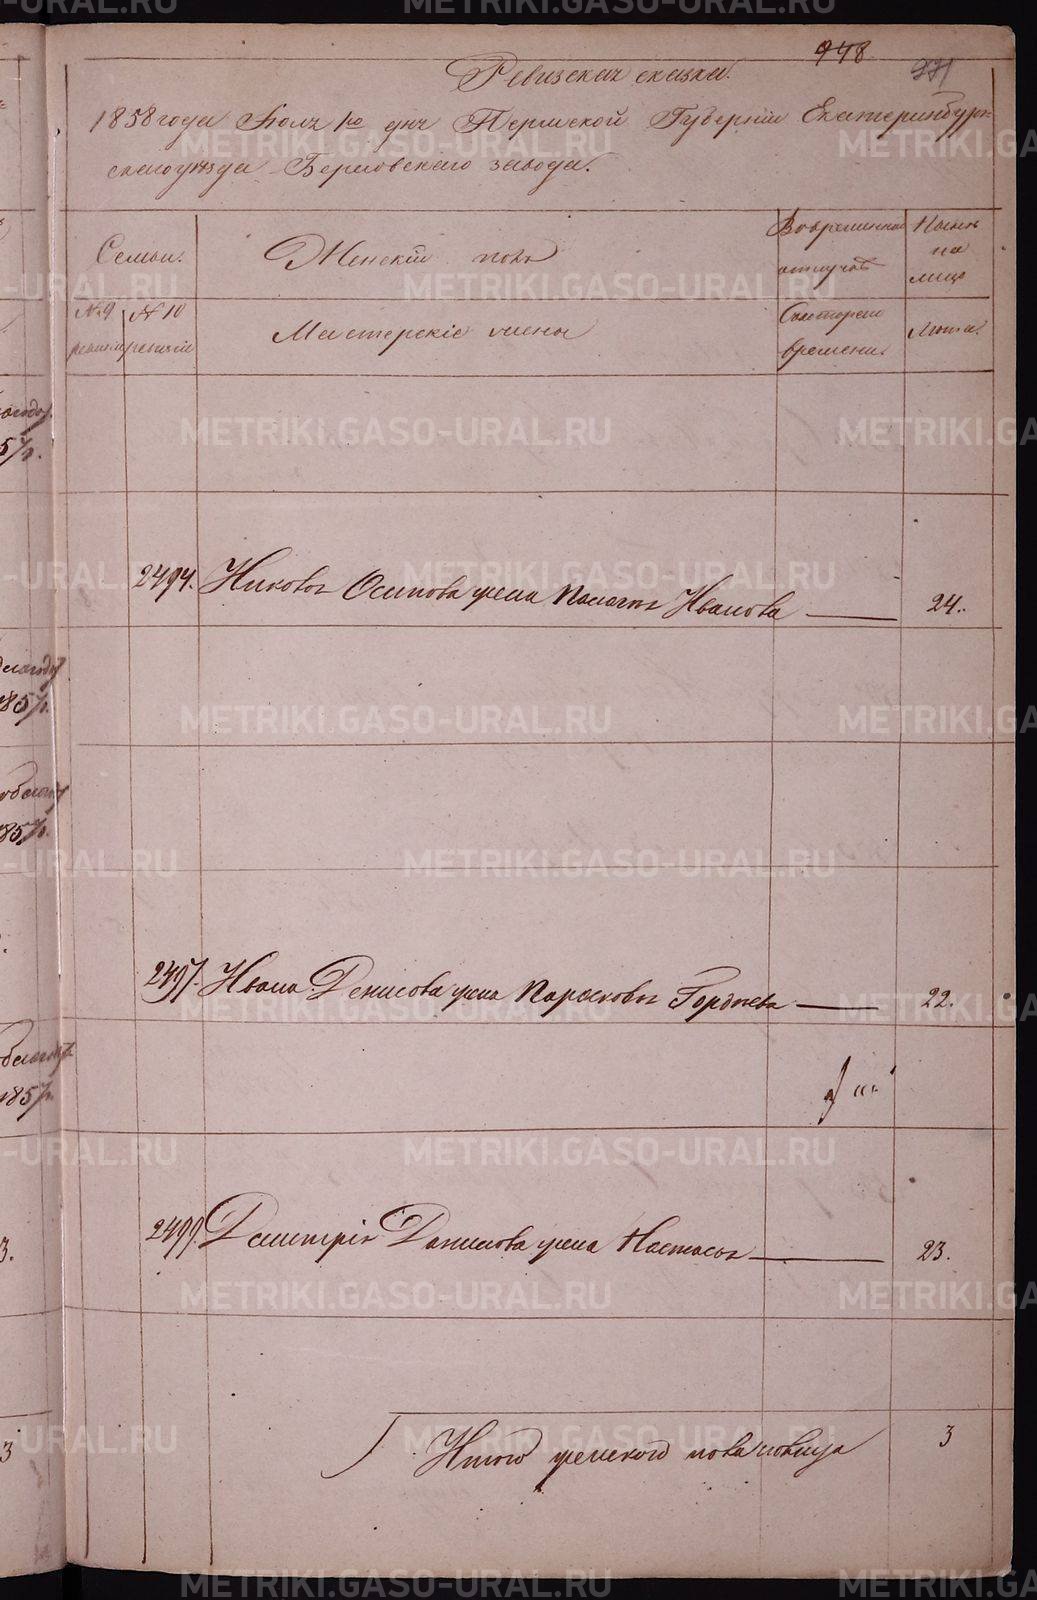 948
971
Ревизская сказка.
1858 года Июля 10 дня Пермской Губернии Екатеринбург-
скаго уезда Березовскаго завода.
Семьи.
Женский пол
Во временной отлучке
Налицо
№ 9 ревизии
№ 10 ревизии
Мастерские жены
С котораго времени.
Лета.
2494. Осипова жена Иванова 24.
2497. Ивана Денисова жена Парасковья Гордеева 22.
2499. Дмитрия Данилова жена Настасья 23.
Итого женского пола налицо 3
3.
3
METRIKI.GASO-URAL.RU